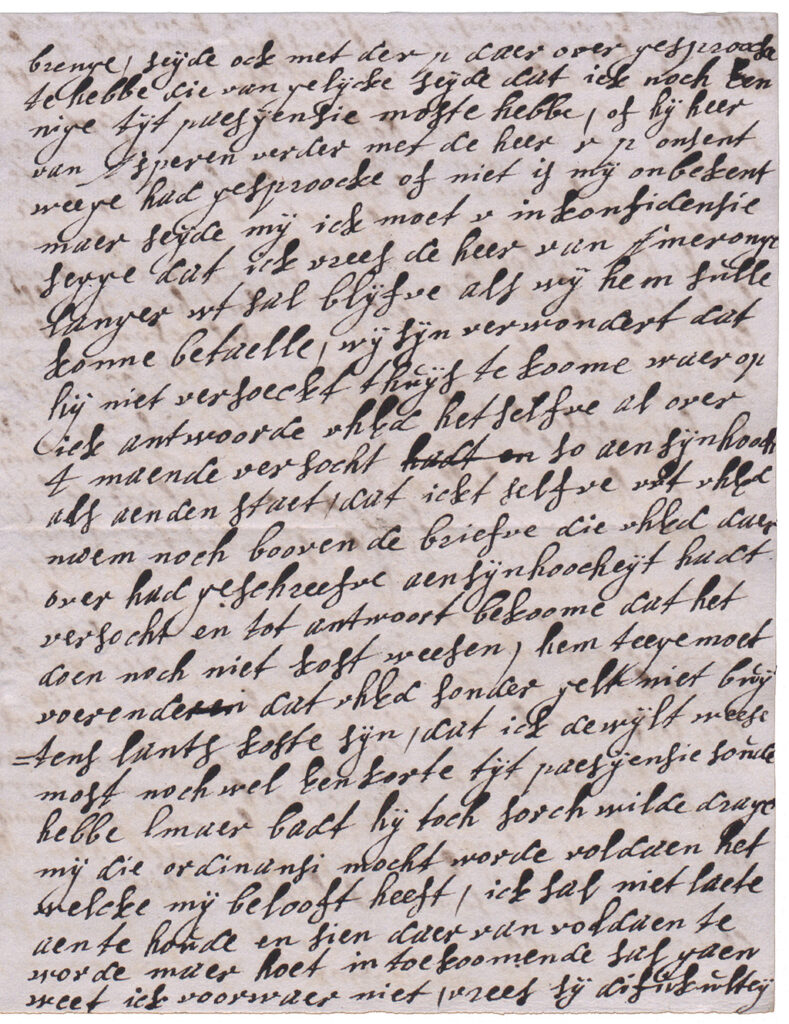 brenge, seÿde ock met der p daer over gesproocke
te hebbe die van gelÿcke seÿde dat ick noch een
nige tÿt paesÿensie moste hebbe, of hÿ heer
van speren verder met de heer r p onsent
weege had gesproocke of niet is mÿ onbekent
maer seÿde mÿ ick moet v in konfidensie
segge dat ick vrees de heer van someronge
langer wt sal blÿfve als wÿ hem sulle
konne betaelle, wÿ sÿn verwondert dat
hÿ niet versoeckt thuÿs te koome waer op
ick antwoorde vhEd hetselfve al over
4 maende versocht hadt en so aen sÿnhooch
als aenden staet, dat ickt selfve wt vhEd
naem noch booven de briefve die vhEd daer
over had geschreefve aensÿnhoocheÿt hadt
versocht en tot antwoort bekoome dat het
doen noch niet kost weesen, hem teegemoet
voerende dat vhEd sonder gelt niet buÿ
=tens lants koste sÿn, dat ick dewÿlt weese
most noch wel een korte tÿt paesÿensie soude
hebbe maer badt hÿ toch sorch wilde drage
mÿ die ordinansi mocht worde voldaen het
welcke mÿ belooft heeft, ick sal niet laete
aen te houde en sien daer van voldaen te
worde maer hoet in toekoomende sal gaen
weet ick voorwaer niet, vrees sÿ difikultey